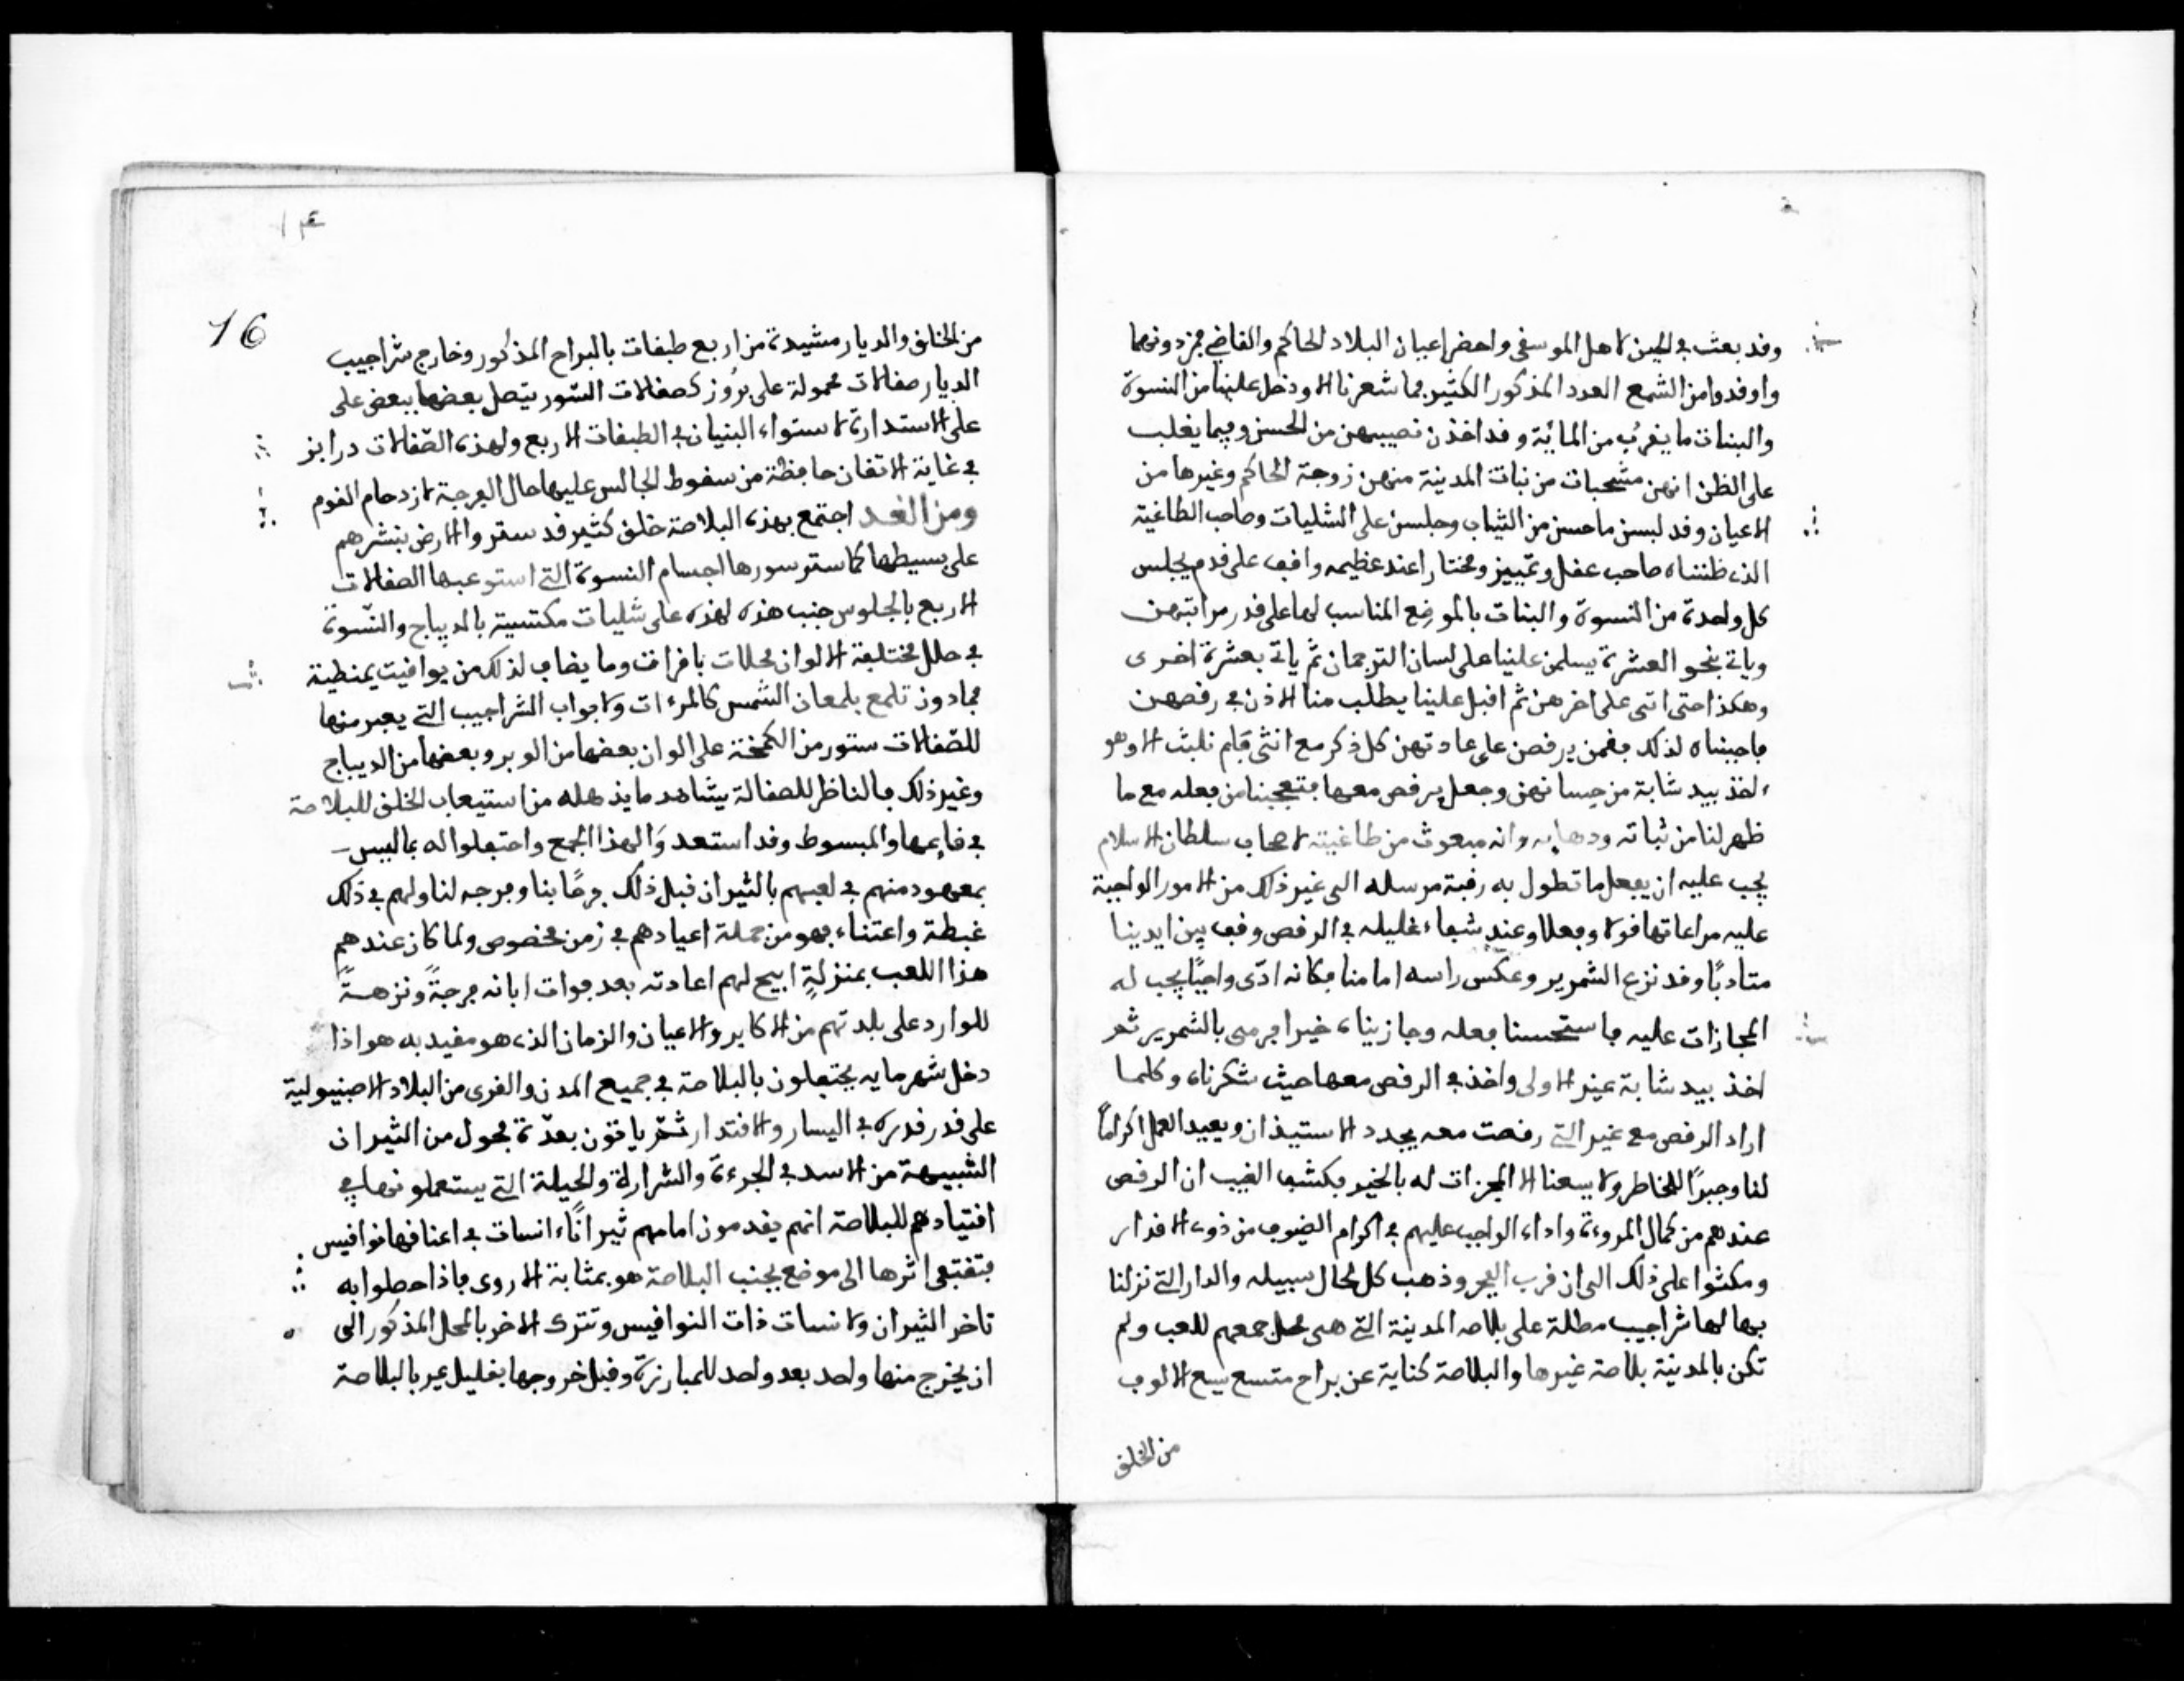 وقد بعث في الحين لاهل الموسقى واحضر اعيان البلاد الحاكم والقاضي فمن دونهما
واوقدوا من الشمع العدد المذكور الكثير فما شعرنا الا ودخل علينا من النسوة
والبنات ما يقرب من المائة وقد اخذن نصيبهن من الحسن وفيما يغلب
على الظن انهن منتخبات من بنات المدينة منهن زوجة الحاكم وغيرها من
الاعيان وقد لبسن ما حسن من الثياب وجلسن على الشليات وصاحب الطاغية
الذي ظنناه صاحب عقل وتمييز ومختارا عند عظيمه واقف على قدم يجلس
كل واحدة من النسوة والبنات بالموضع المناسب لها على قدر مراتبهن
وياتي بنحو العشرة يسلمن علينا على لسان الترجمان ثم ياتي بعشرة اخرى
وهكذا حتى اتى على اخرهن ثم اقبل علينا يطلب منا الاذن في رقصهن
فاجبناه لذلك فقمن يرقصن على عادتهن كل ذكر مع انثى فلم نلبث الا وهو
ءاخذ بيد شابة من حسانهن وجعل يرقص معها فتعجبنا من فعله مع ما
ظهر لنا من ثباته ودهايه وانه مبعوث من طاغيته لاصحاب سلطان الاسلام
يجب عليه ان يفعل ما تطول به رقبة مرسله الى غير ذلك من الامور الواجبة
عليه مراعاتها قولا وفعلا وعند شفاء غليله في الرقص وقف بين ايدينا
متادبًا وقد نزع الشمرير وعكس راسه امامنا فكانه ادّى واجبًا يجب له
المجازات عليه فاستحسنا فعله وجازيناه خيرا فرمى بالشمرير ثم
اخذ بيد شابة غير الاولى واخذ في الرقص معها حيث شكرناه وكلما
اراد الرقص مع غير التي رقصت معه يجدد الاستيذان ويعيد العمل اكراماً
لنا وجبرًا للخاطر ولا يسعنا الا المجزات له بالخير فكشف الغيب ان الرقص
عندهم من كمال المروءة واداء الواجب عليهم في اكرام الضيوف من ذوي الاقدار
ومكثوا على ذلك الى ان قرب الفجر وذهب كل لحال سبيله والدار التي نزلنا
بها لها شراجيب مطلة على بلاصه المدينة التي هي محل جمعهم للعب ولم
تكن بالمدينة بلاصة غيرها والبلاصة كناية عن براح متسع يسع الالوف
من الخلق
16
من الخلق والديار مشيدة من اربع طبقات بالبراح المذكور وخارج شراجيب
الديار صقالات محمولة على بروز كصقالات السور يتصل بعضها ببعض على
على الاستدارة لاستواء البنيان في الطبقات الاربع ولهذه الصقالات درابز
في غاية الاتقان حافظة من سقوط الجالس عليها حال الفرجة لازدحام القوم
ومن الغد اجتمع بهذه البلاصة خلق كثير قد ستروا الارض بنشرهم
على بسيطها كما ستر سورها اجسام النسوة التي استوعبها الصقالات
الاربع بالجلوس جنب هذه لهذه على شليات مكتسية بالديباج والنسوة
في حلل مختلفة الالوان محلات بافرات وما يضاف لذلك من يواقيت يمنطية
فما دون تلمع بلمعان الشمس كالمرءات ولابواب الشراجيب التي يعبر منها
للصقالات ستور من الكمخة على الوان بعضها من الوبر وبعضها من الديباج
وغير ذلك فالناظر للصقالة يشاهد ما يذهله من استيعاب الخلق للبلاصة
في قايمها والمبسوط وقد استعدوا لهذا الجمع واحتفلوا له بما ليس
بمعهود منهم في لعبهم بالثيران قبل ذلك فرحًا بنا وفرجه لنا ولهم في ذلك
غبطة واعتناء فهو من جملة اعيادهم في زمن مخصوص ولما كان عندهم
هذا اللعب بمنزلةٍ ابيح لهم اعادته بعد فوات ابانه فرجةً ونزهةً
للوارد على بلدتهم من الاكابر والاعيان والزمان الذي هو مقيد به هو اذا
دخل شهر مايه يحتفلون بالبلاصة في جميع المدن والقرى من البلاد الاصبنيولية
على قدر قدره في اليسار والاقتدار ثم ياتون بعدّة فحول من الثيران
الشبيهة من الاسد في الجرءة والشرارة والحيلة التي يستعملونها في
اقتيادهم للبلاصة انهم يقدمون امامهم ثيراناً ءانسات في اعناقها نواقيس
فتقتفي اثرها الى موضع يجنب البلاصة هو بمثابة الاروى فاذا حصلوا به
تاخر الثيران ولانسات ذات النواقيس وتترك الاخر بالمحل المذكور الى
ان يخرج منها واحد بعد واحد للمبارزة وقبل خروجها بقليل عبر بالبلاصة